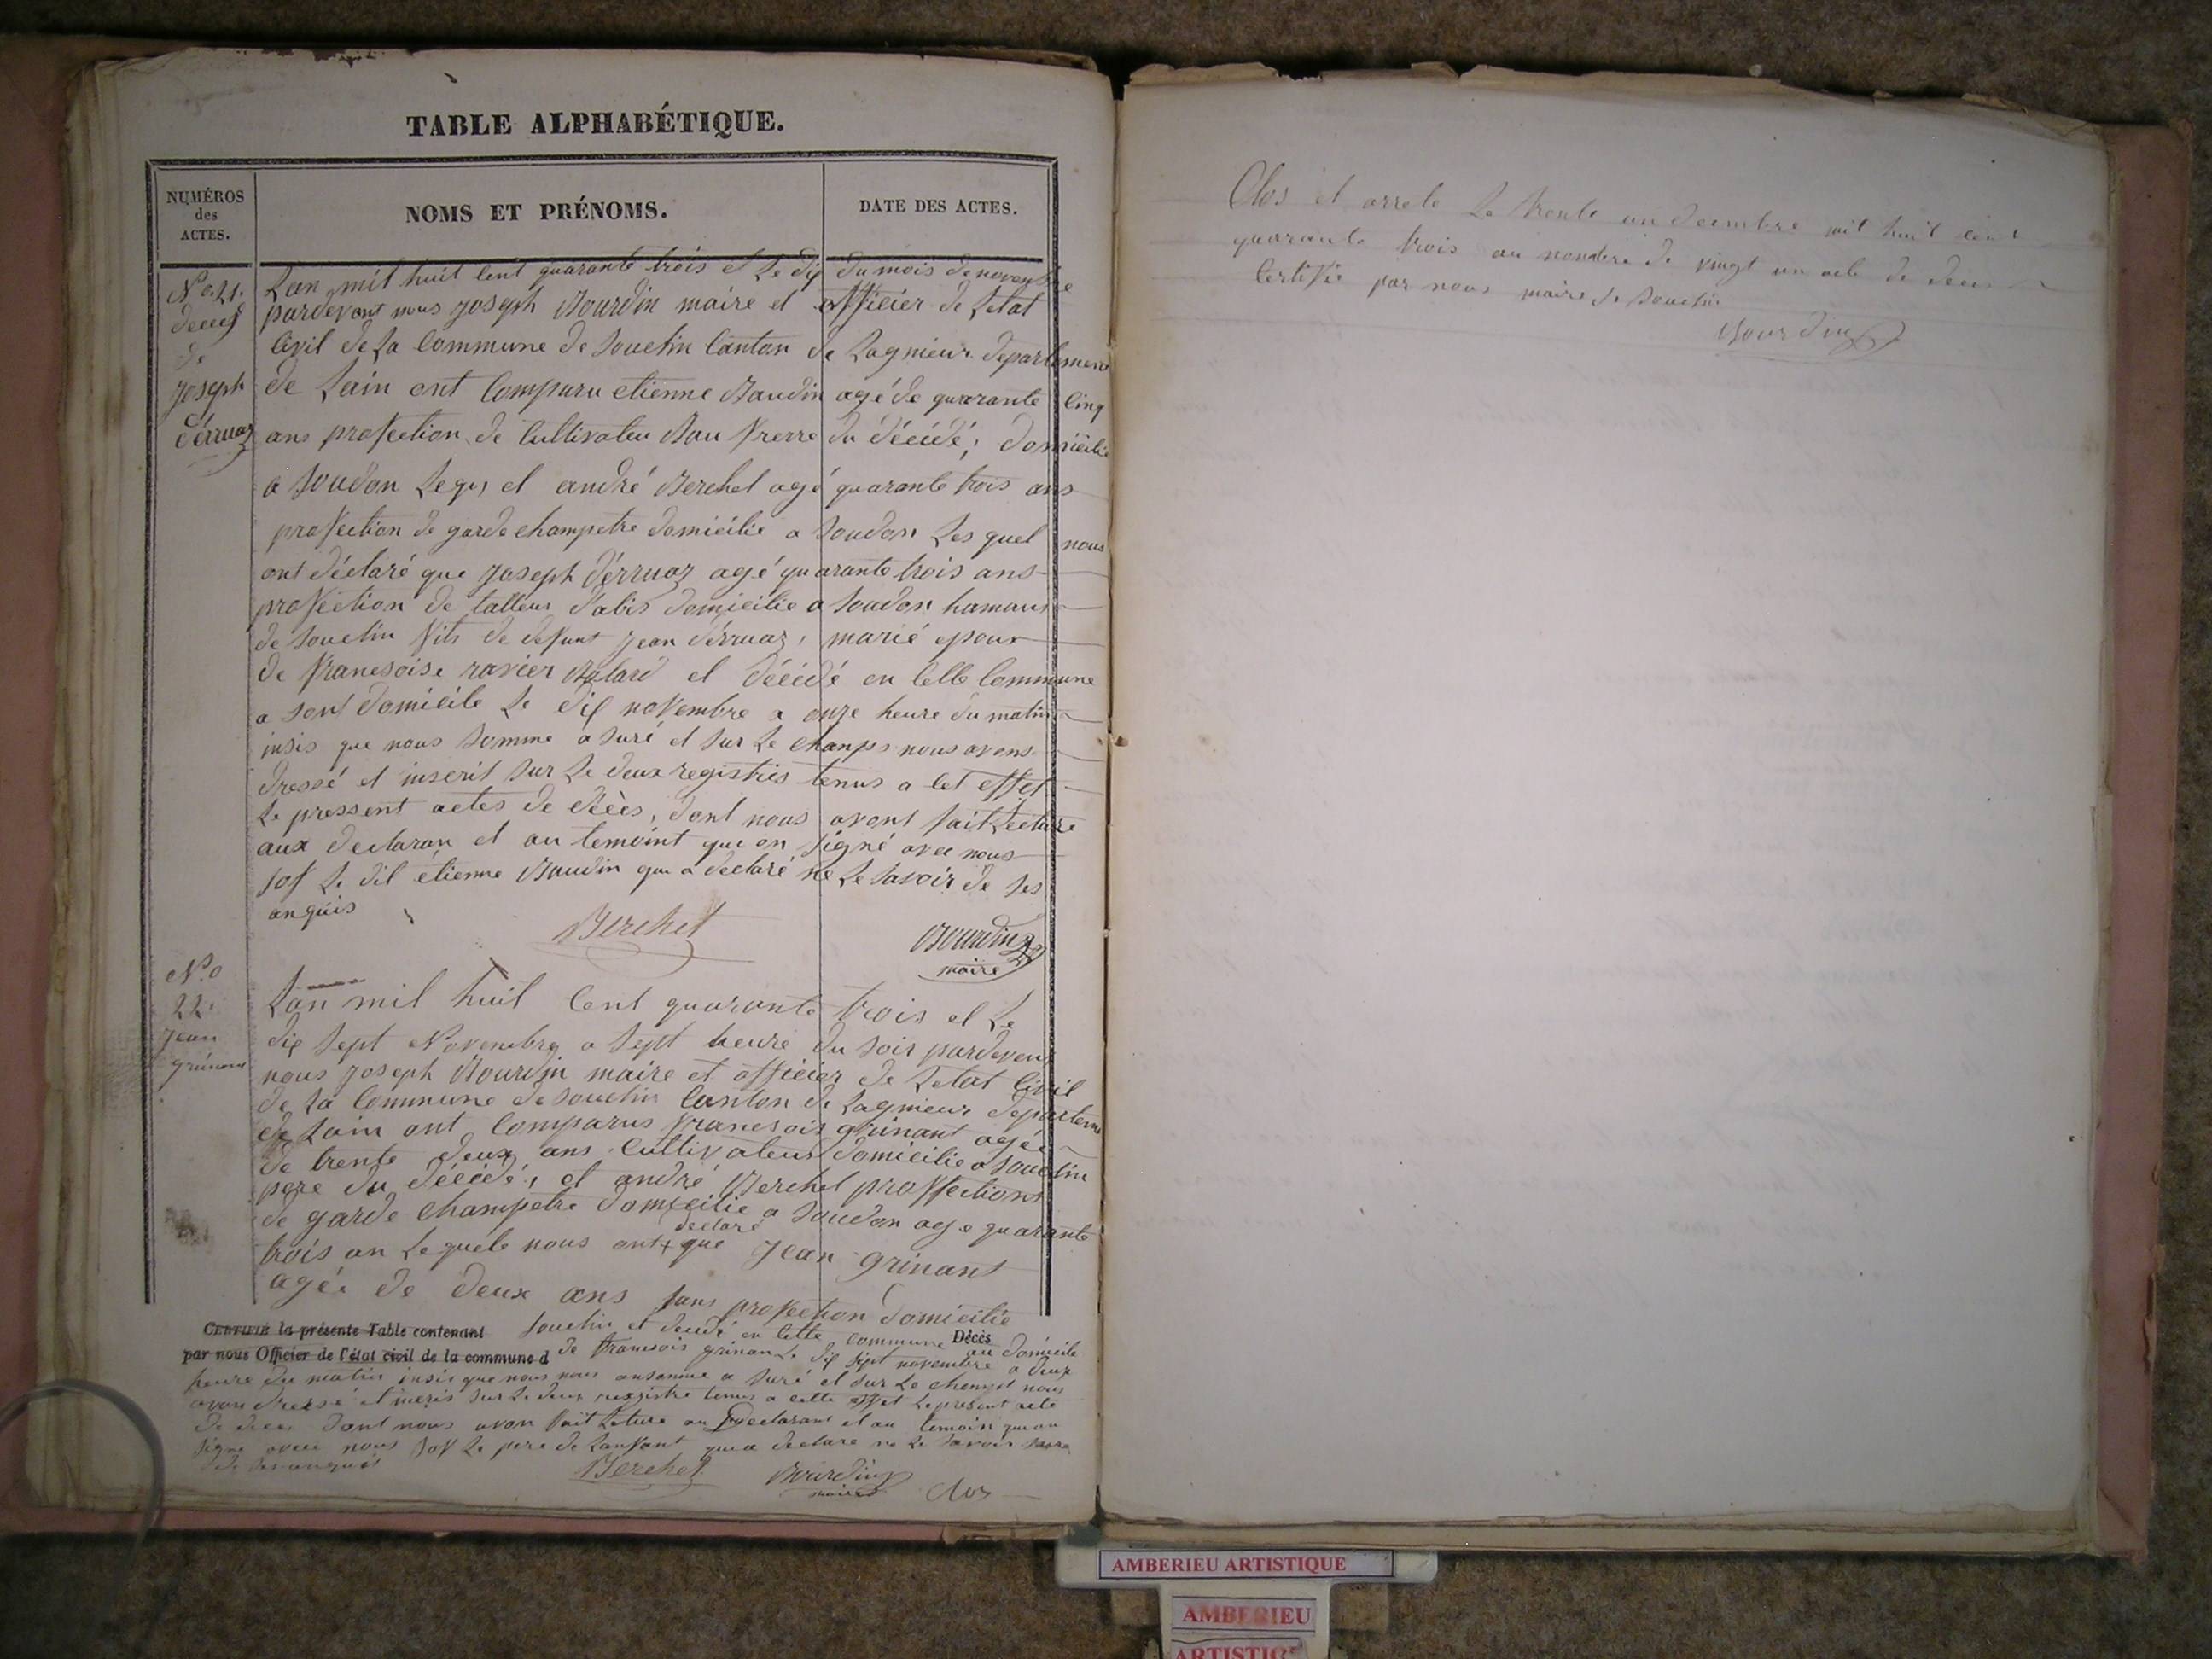 TABLE ALPHABÉTIQUE.
NUMÉROS
des
ACTES.
NOMS ET PRÉNOMS.
DATE DES ACTES.
No. 21.
deces
de
joseph
dérruaz
Lan mil huit cent quarante trois et le dix du mois de novembre
pardevant nous joseph Bourdin maire et officier de Letat
Civil de La Commune de Souclin Canton de Lagnieur departement
de Lain ont Comparu etienne Baudin agé de quarante Cinq
ans profection de Cultivateu Bau frerre du décédé, domicilie
a Soudon Leqs, et andré Berchet agé quarante trois ans
profection de garde champetre domicilie a Soudon Les quel nous
ont déclaré que joseph dérruaz agé quarante trois ans
profection de talleur dabis domicilie a Soudon hamaux
de Souclin fils de defunt jean dérruaz, marié epoux
de francsoise ravier Balard et décédé en Celle Commune
a sont domicile Le dix novembre a onze heure du matin
insis que nous Somme a Suré et Sur Le champs nous avons
dressé et inscrit Sur Le deux registres tenus a Cet effet
Le pressent actes de décès, dont nous avont fait Lecture
aux declaran et au temoint que on Signé avec nous
Sof Le dit étienne Baudin qui a declaré ne Le Savoir de Ses
anquis
Berchet
Bourdin
maire
No
22.
jean
grinant
Lan mil huit Cent quarante trois et Le
dix Sept Novembre a Sept heure du Soir pardevent
nous joseph Bourdin maire et officier de Letat Civil
de La Commune de Souclin Canton de Lagnieur departeme
de Lain ont Comparus francsois grinant agée
de trente deux ans Cultivateur domicilie a Souclin
pere du décédé, et andré Berchet proffections
de garde champetre domicilie a Soudon age quarante
declaré
trois an Lequele nous ont+ que jean grinant
agée de deux ans Sans profection domicilie
CERTIFIÉ la présente Table contenant
Souclin et decedé en Cette Commune
Décès
au domicile
par nous Officier de l'état civil de la commune d
de francois grinan Le dix Sept novembre a deux
heure du matin insis que nous nous ansomme a Suré et Sur Le champst nous
avon dressé et incris Sur Le deux regisitre tenus a Cette effet Le present acte
de deces dont nous avon fait Leture au Declarant et au temoin qui on
Signe avec nous Sof Le pere de Lanfant qui a declaré ne Le Savoir
Berchet
Bourdin
maire
Clos
Clos et arrete Le trente un decembre mil huit cent
quarante trois au nombre de vingt un acte de deces
Certifie par nous maire de Souclin
Bourdin
AMBERIEU ARTISTIQUE
AMBERIEU
ARTISTIQUE